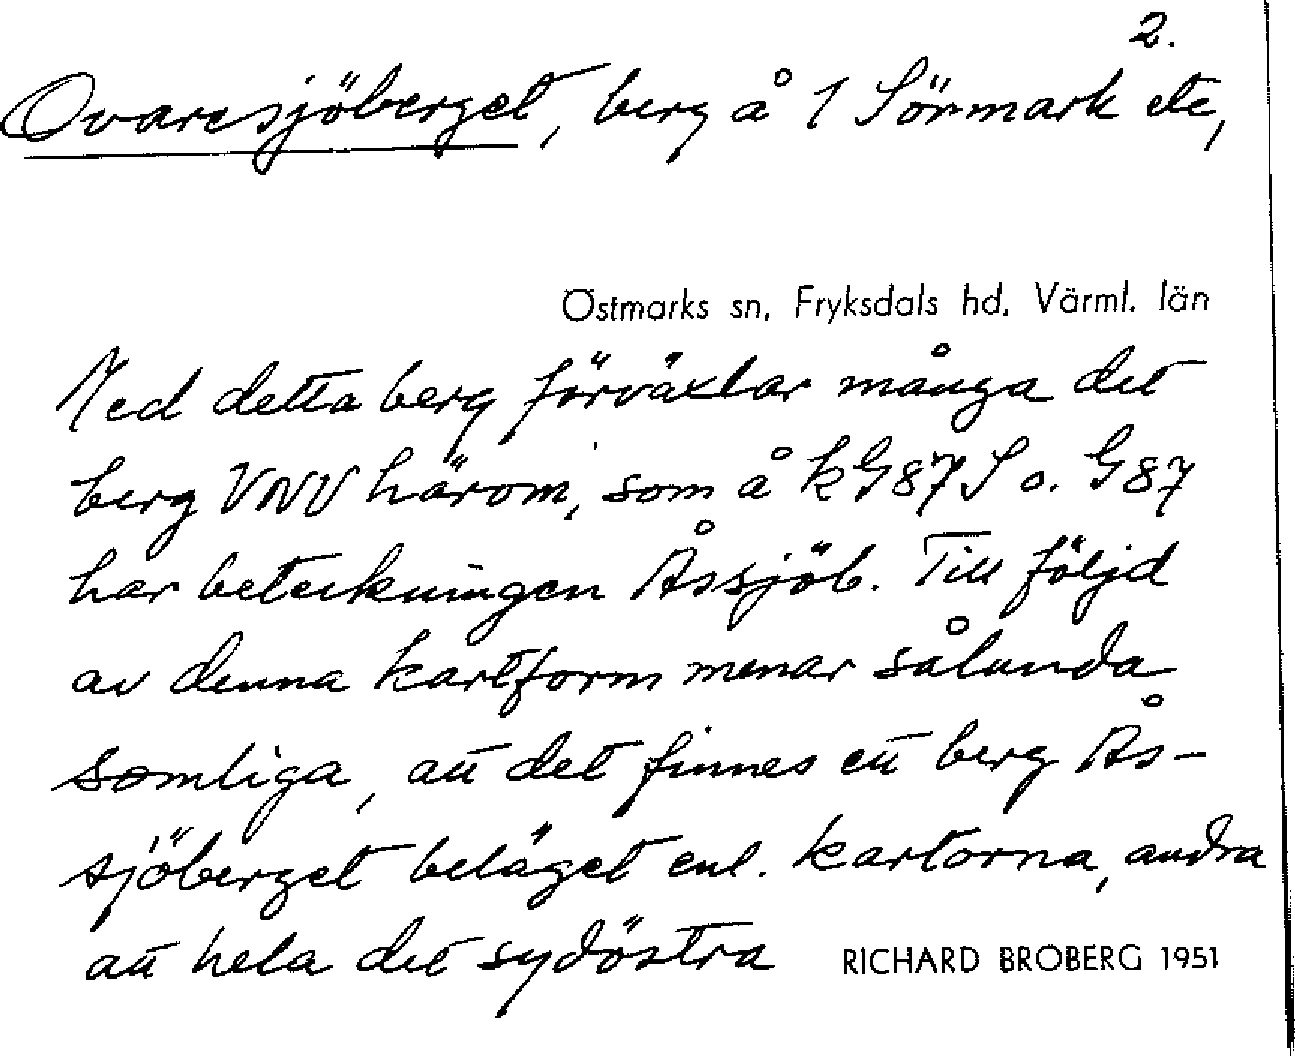 2.
Ovaresjöberget, berg å 1 Sörmark etc,
Östmarks sn, Fryksdals hd. Värml. län
Med detta berg förväxlar många det
berg VNV härom, som å k G87S o. G87
har beteckningen Åssjöb. Till följd
av denna kartform menar sålunda
somliga, att det finnes ett berg Ås-
sjöberget beläget enl. kartorna, andra
att hela det sydöstra
RICHARD BROBERG 1951